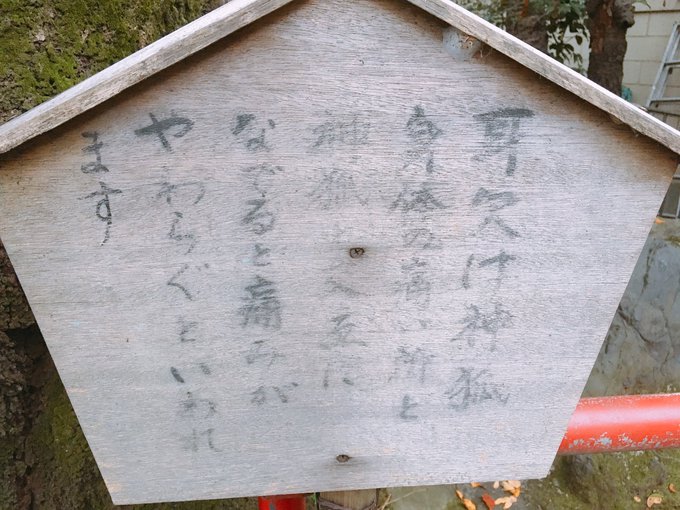 耳欠け神狐
身体の痛い所と
神狐と交互に
なでると痛みが
やわらぐといわれ
ます